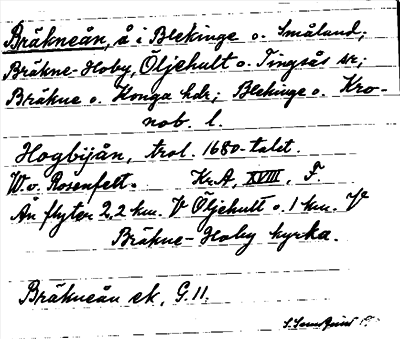 Bräkneån, å i Blekinge o. Småland;
Bräkne-Hoby, Öljehult o. Tingsås sr;
Bräkne o. Konga hdr; Blekinge o. Kro-
nob. l.
Hogbijån, trol. 1680-talet.
W. v. Rosenfelt. Kr.A, XVIII, F.
Ån flyter 2,2 km. V Öljehult o. 1 km. V
Bräkne-Hoby kyrka.
Bräkneån ek, G.11.